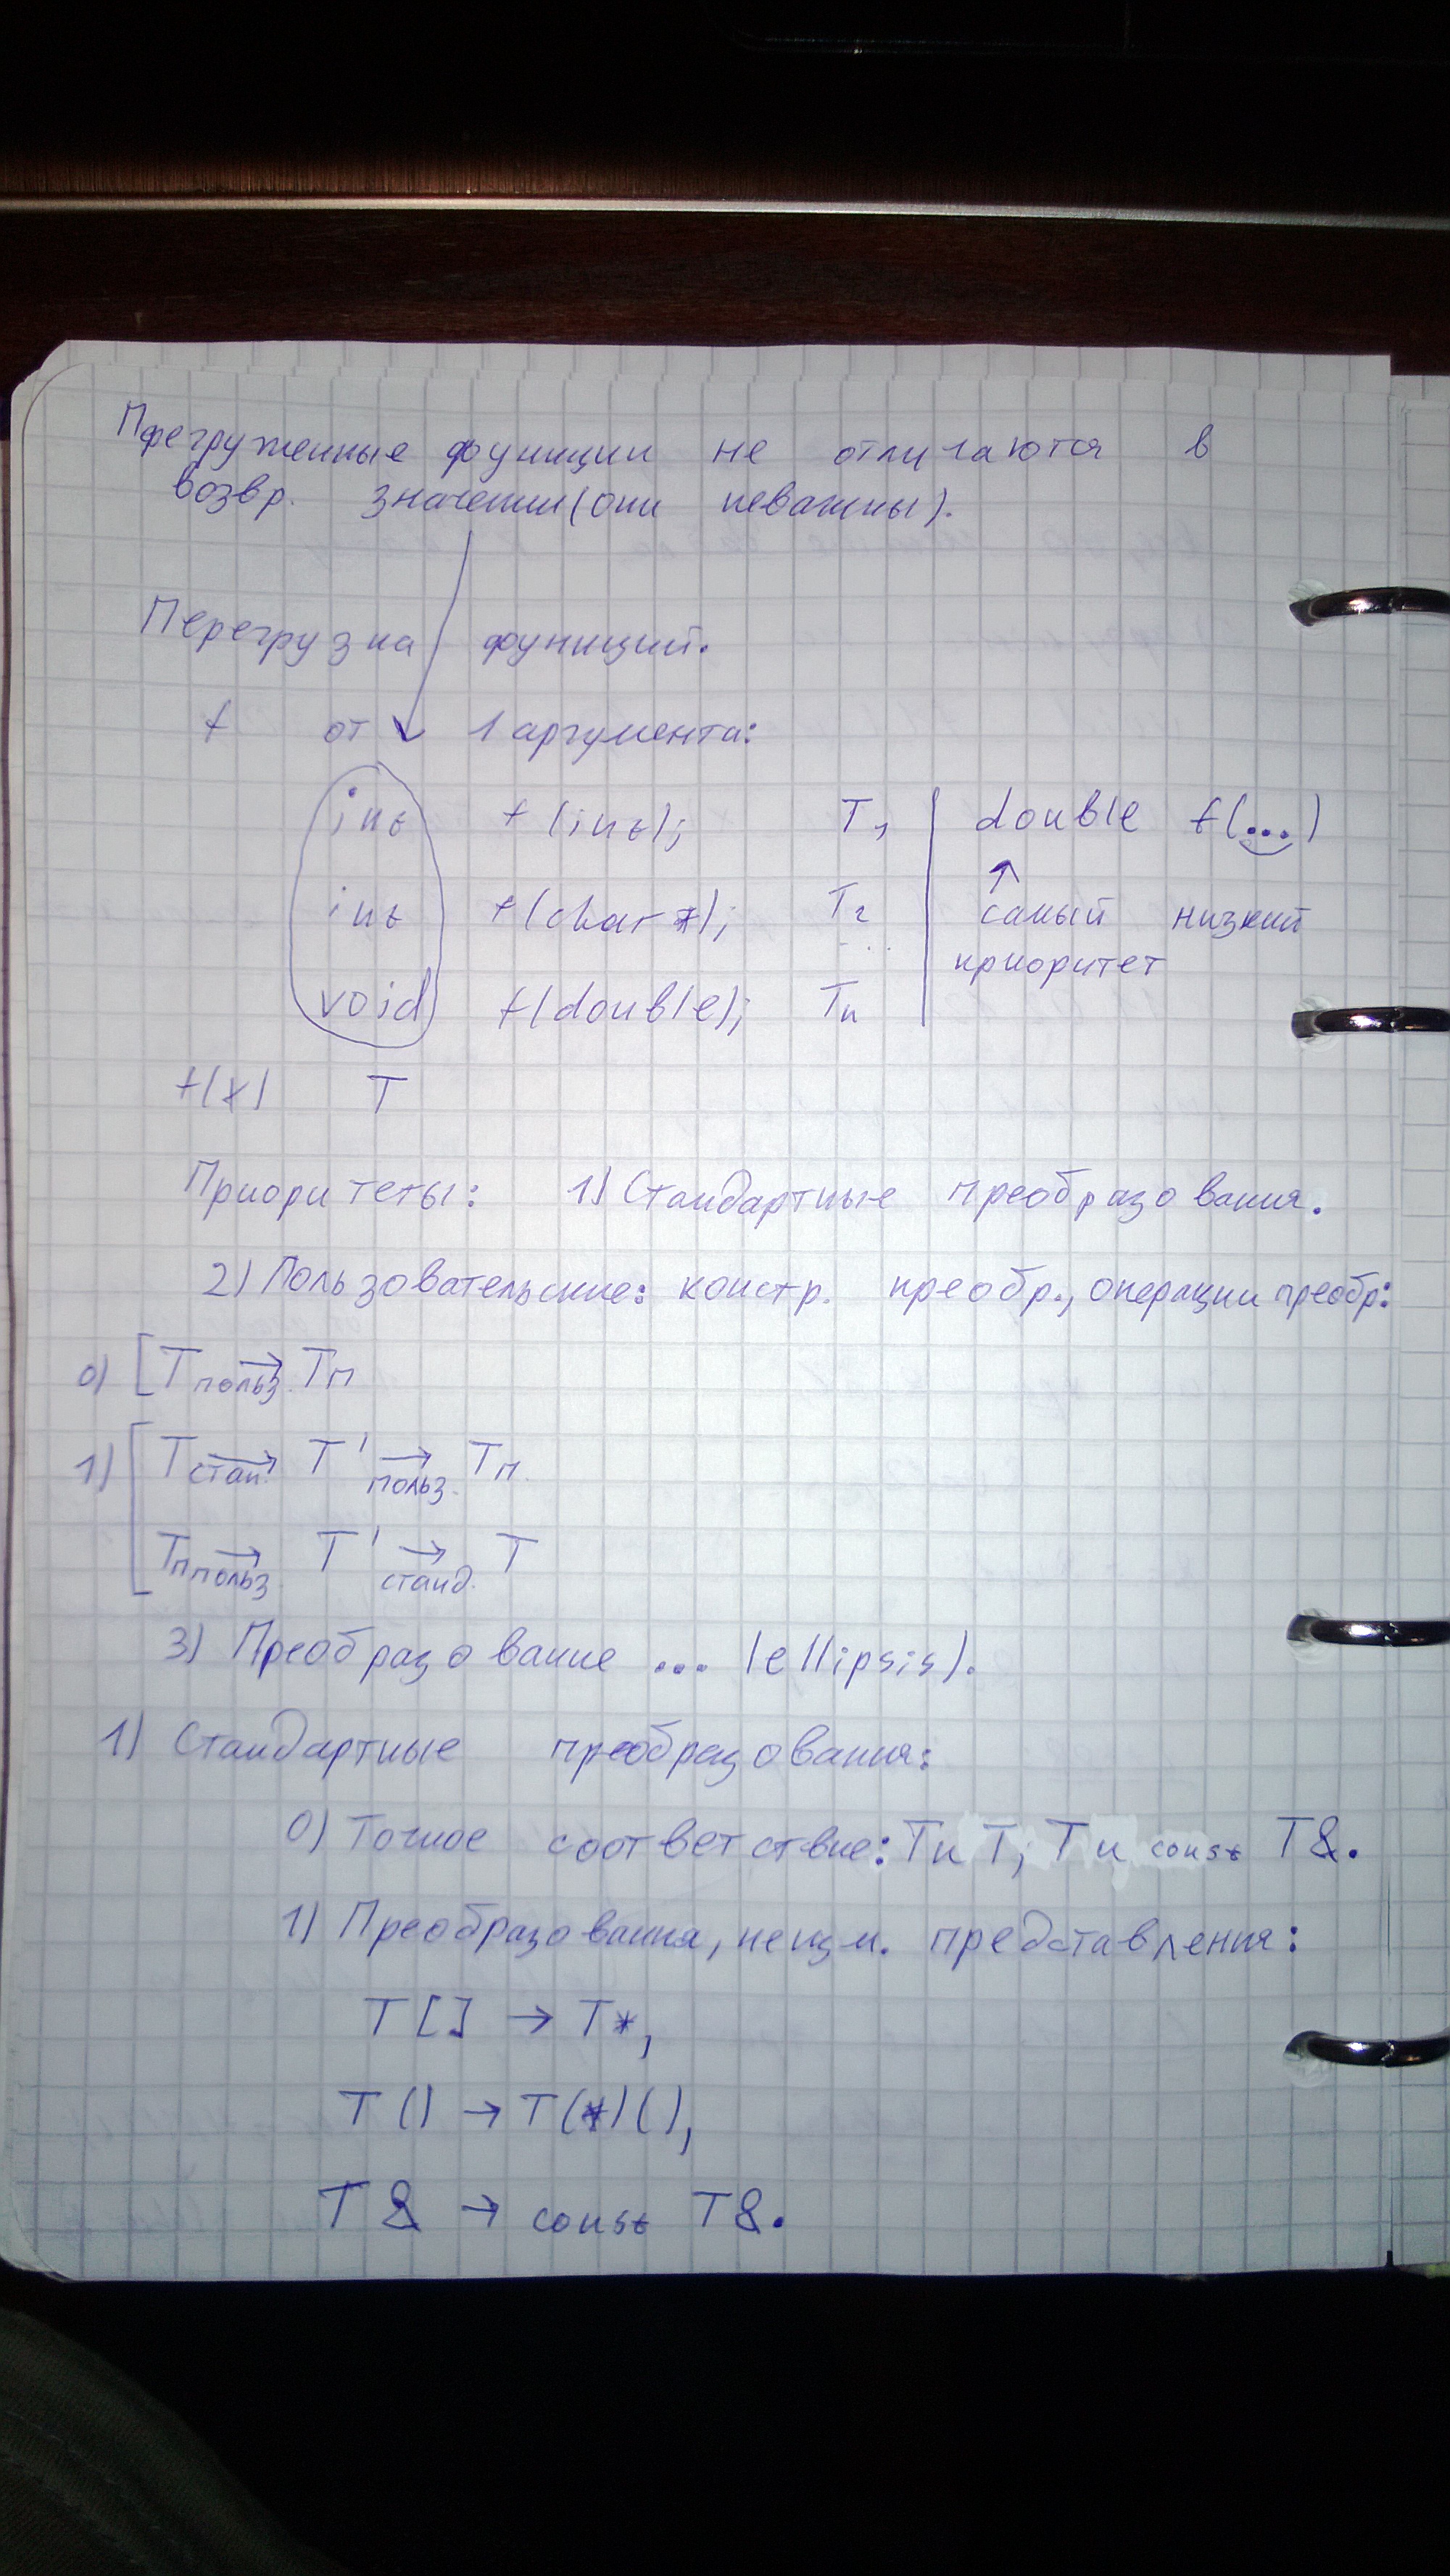 Прегруженные функции не отличаются в
возвр. значении (они неважны).
Перегрузка функций.
f от 1 аргумента:
int f(int); T₁ double f(...)
int f(char*); T₂ самый низкий
... приоритет
void f(double); Tn
f(x) T
Приоритеты: 1) Стандартные преобразования.
2) Пользовательские: констр. преобр., операции преобр:
0) [T →польз. Tп
1) [T →стан. T' →польз. Tп
Tп →польз. T' →станд. T
3) Преобразование ... (ellipsis).
1) Стандартные преобразования:
0) Точное соответствие: T и T; T и const T&.
1) Преобразования, неизм. представления:
T[] → T*,
T() → T(*)(),
T& → const T&.